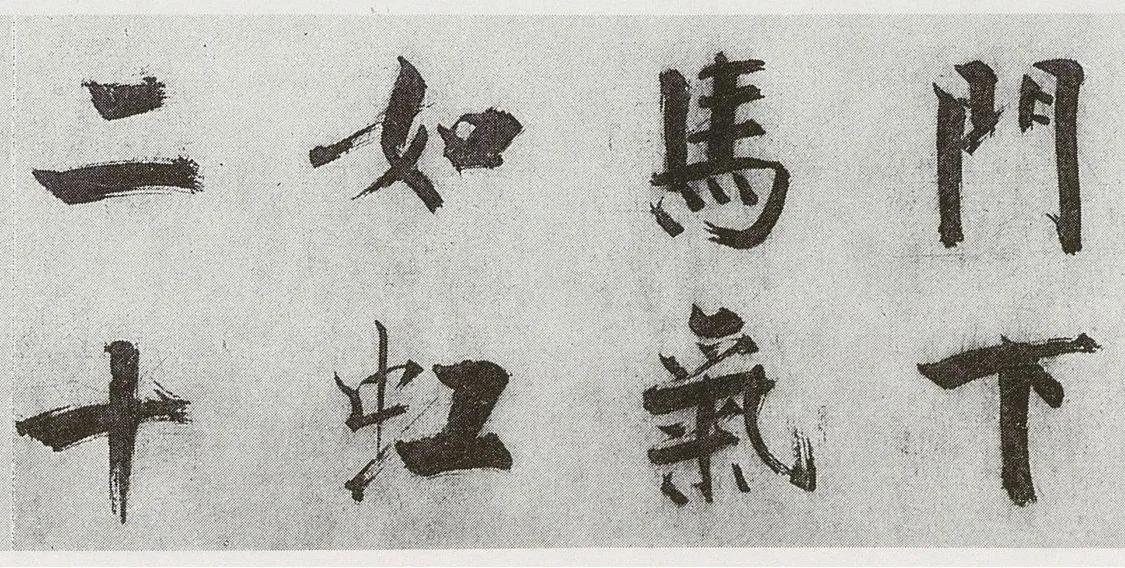 門下
馬氣
如虹
二十